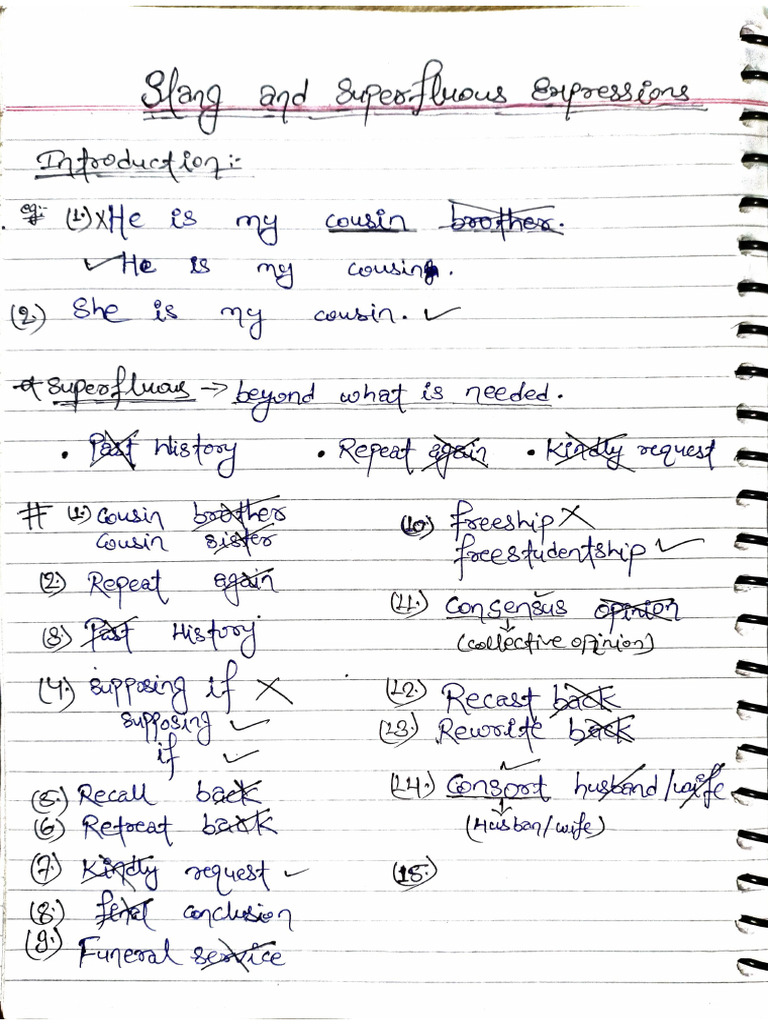 Slang and Superfluous Expressions
Introduction:-
eg:- (1.) ×He is my cousin brother.
✓ He is my cousin.
(2.) She is my cousin. ✓
* Superfluous → beyond what is needed.
• Past History • Repeat again • Kindly request
# (1.) cousin brother
cousin sister
(2.) Repeat again
(3.) Past History
(4.) supposing if ×
supposing ✓
if ✓
(5.) Recall back
(6.) Retreat back
(7.) Kindly request ✓
(8.) final conclusion
(9.) Funeral service
(10.) freeship ×
freestudentship ✓
(11.) Consensus opinion
(collective opinion)
(12.) Recast back
(13.) Rewrite back
(14.) Consort husband/wife
(Husban/wife)
(15.)